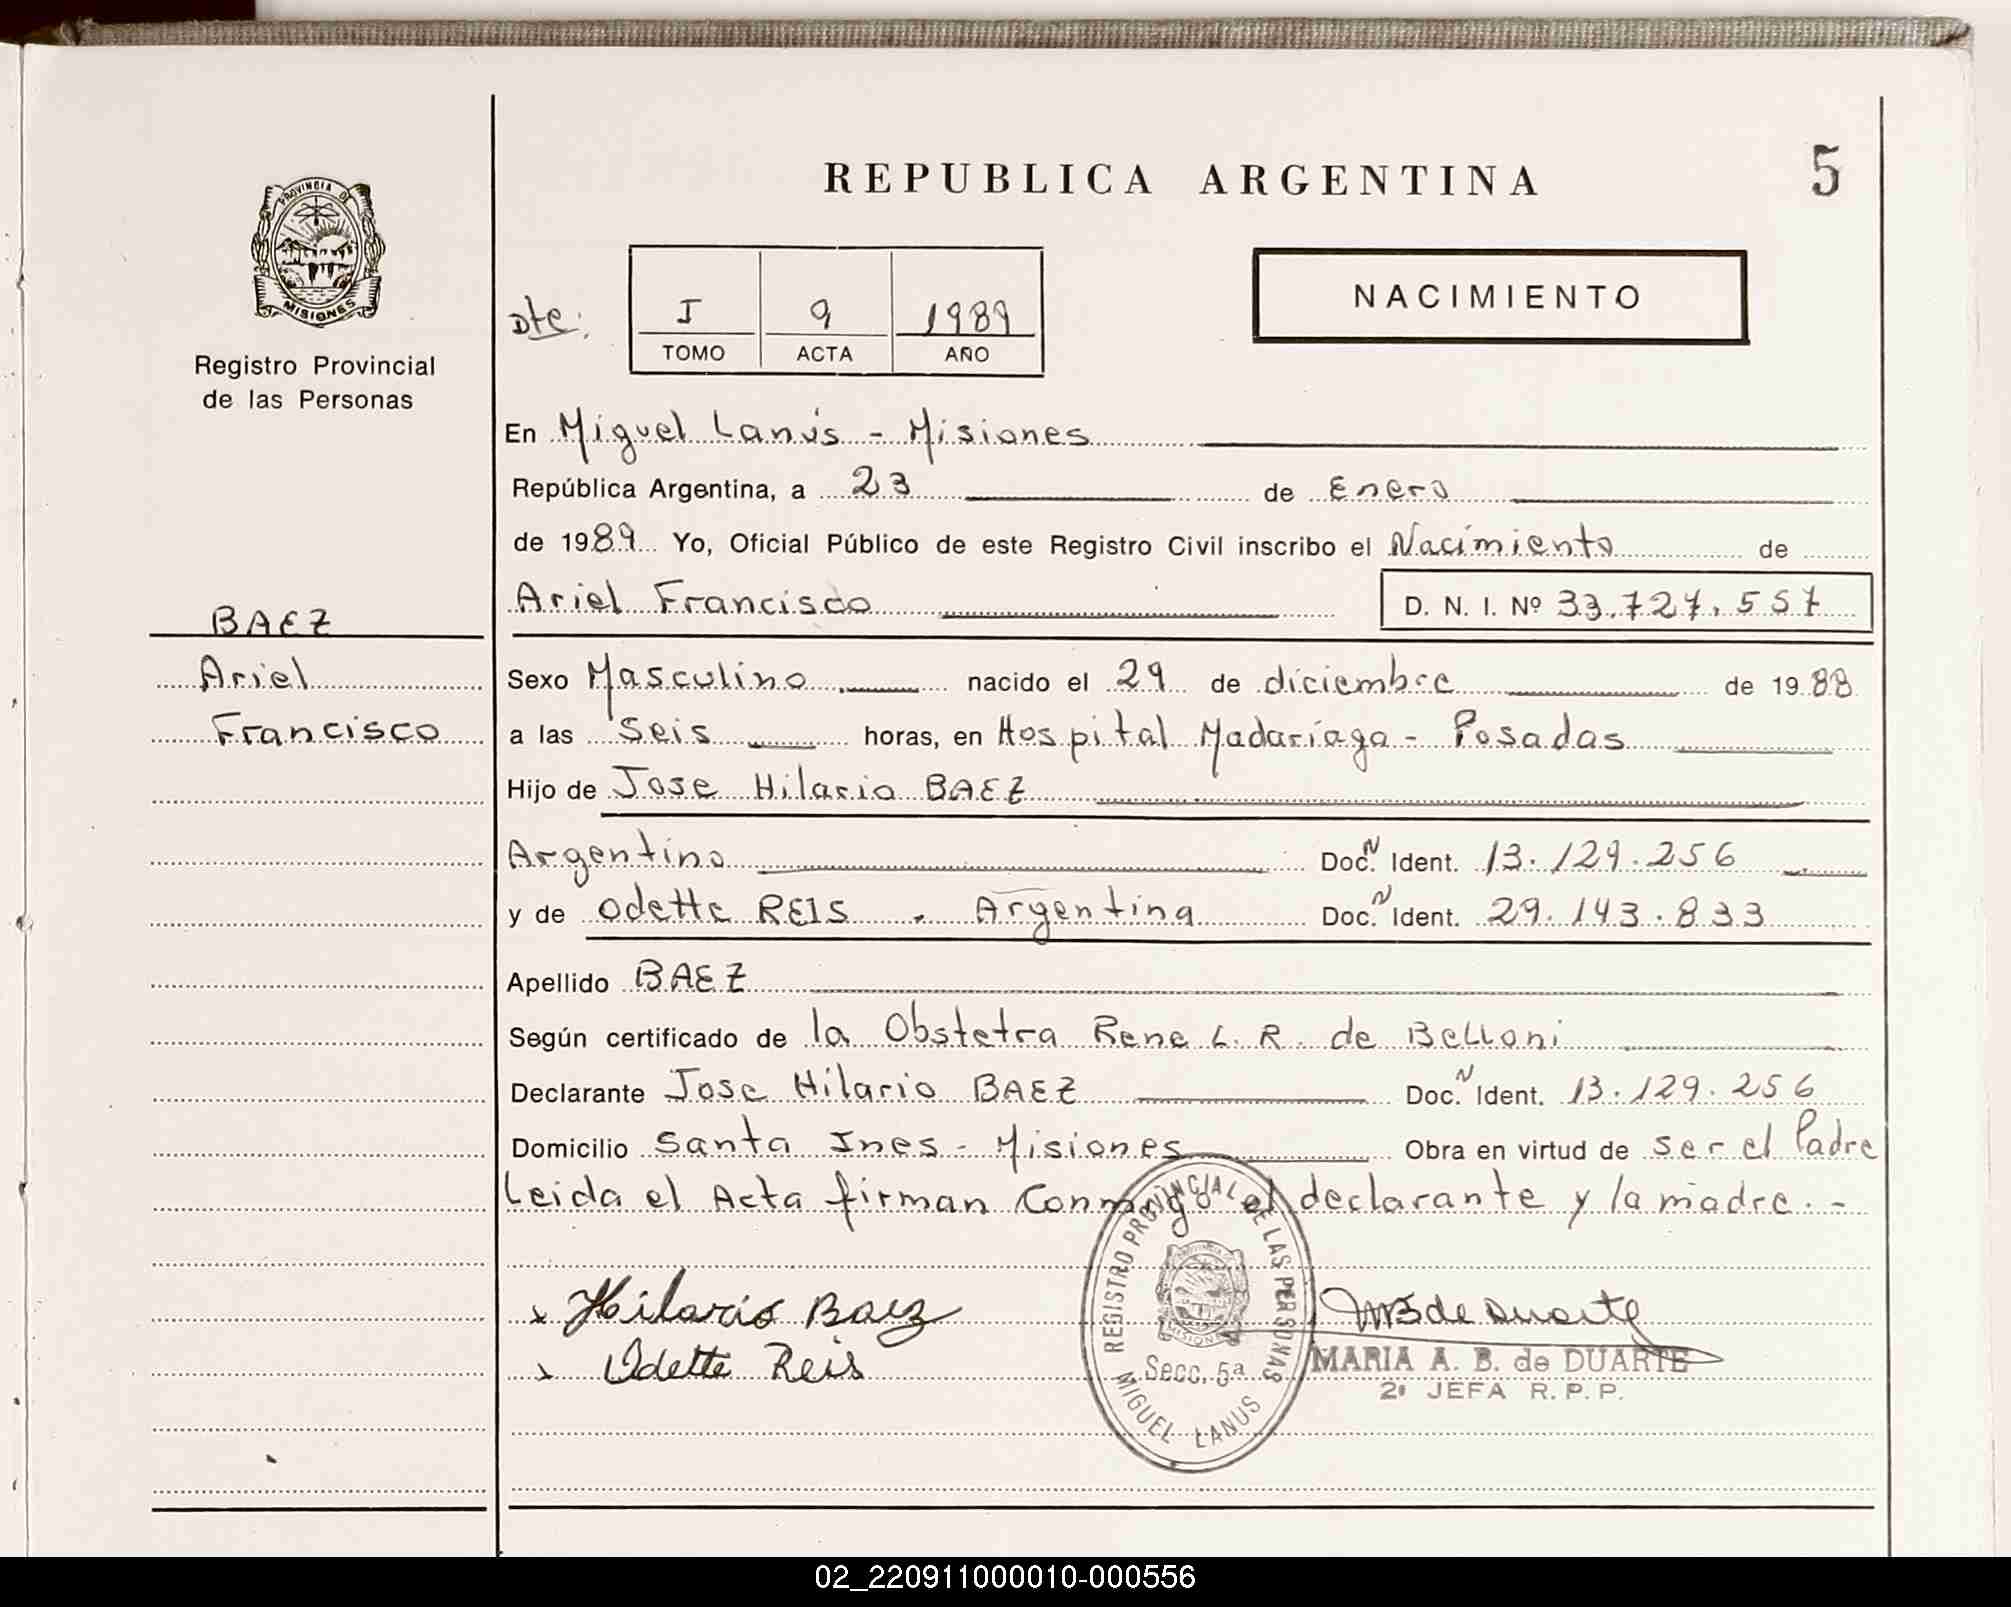 REPUBLICA ARGENTINA
5
PROVINCIA DE
MISIONES
Registro Provincial
de las Personas
Dte:
I 9 1989
TOMO ACTA AÑO
NACIMIENTO
En Miguel Lanús - Misiones
República Argentina, a 23 de Enero
de 1989 Yo, Oficial Público de este Registro Civil inscribo el Nacimiento de
Ariel Francisco D. N. I. Nº 33.727.557
BAEZ
Ariel
Francisco
Sexo Masculino nacido el 29 de diciembre de 1988
a las Seis horas, en Hospital Madariaga - Posadas
Hijo de Jose Hilario BAEZ
Argentino Doc. N Ident. 13.129.256
y de Odette REIS . Argentina Doc. N Ident. 29.143.833
Apellido BAEZ
Según certificado de la Obstetra Rene L. R. de Belloni
Declarante Jose Hilario BAEZ Doc. N Ident. 13.129.256
Domicilio Santa Ines - Misiones Obra en virtud de ser el Padre
Leida el Acta firman Conmigo el declarante y la madre. -
x Hilario Baez
x Odette Reis
REGISTRO PROVINCIAL DE LAS PERSONAS
Secc. 5ª
MIGUEL LANUS
MB de Duarte
MARIA A. B. de DUARTE
2ª JEFA R. P. P.
02_220911000010-000556